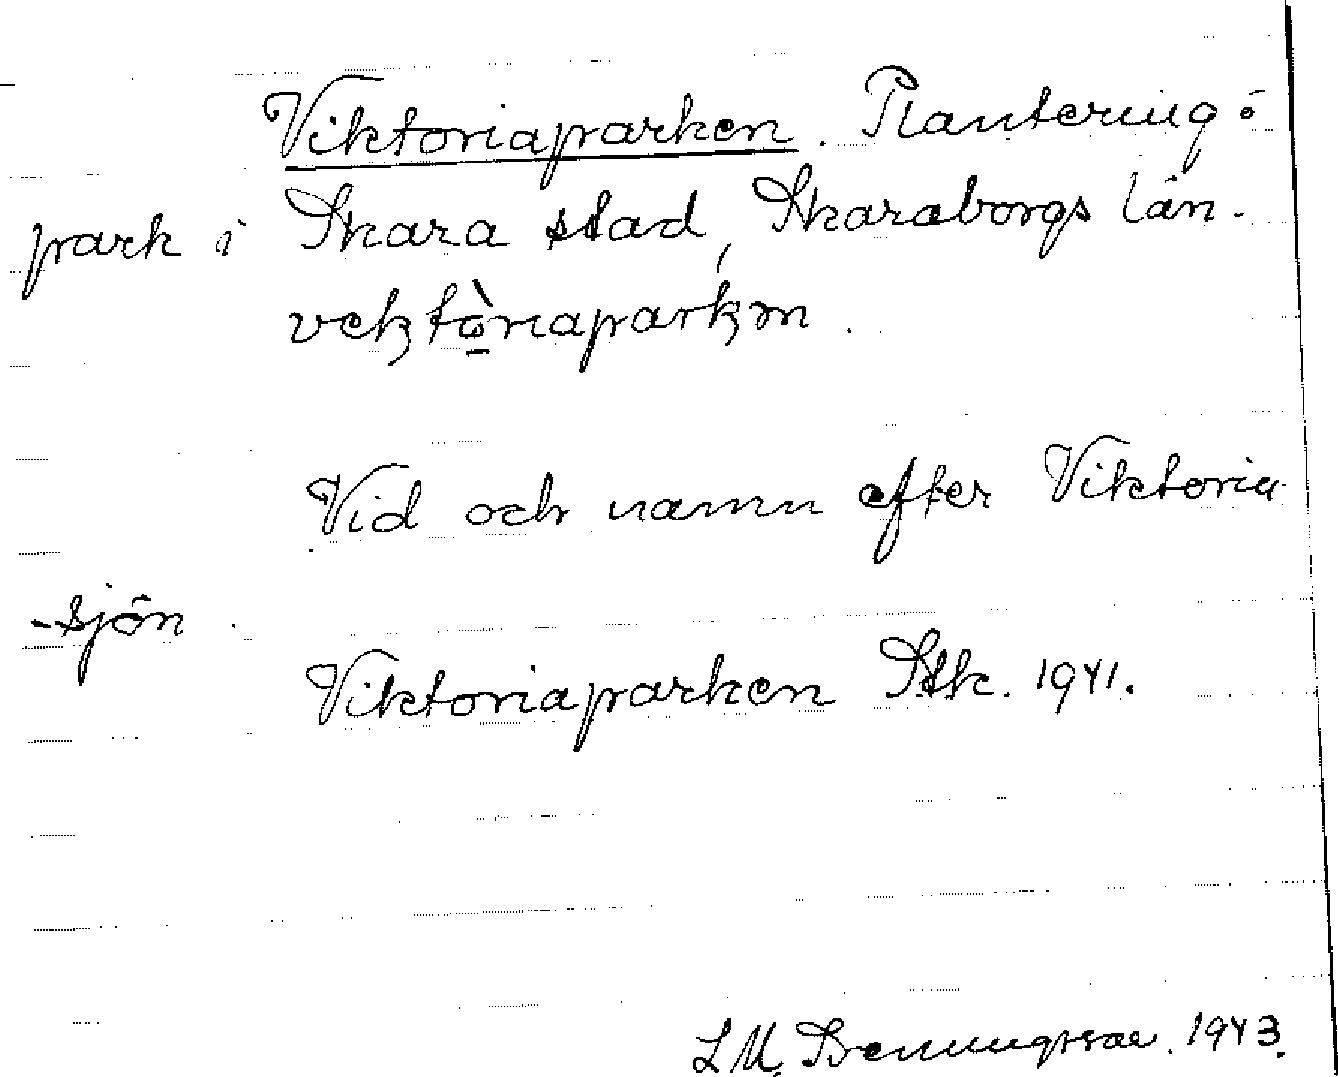 Viktoriaparken. Plantering o
park i Skara stad, Skaraborgs län.
vektòriaparkm.
Vid och namn efter Viktoria
-sjön.
Viktoriaparken Stk. 1941.
L M. 1943.